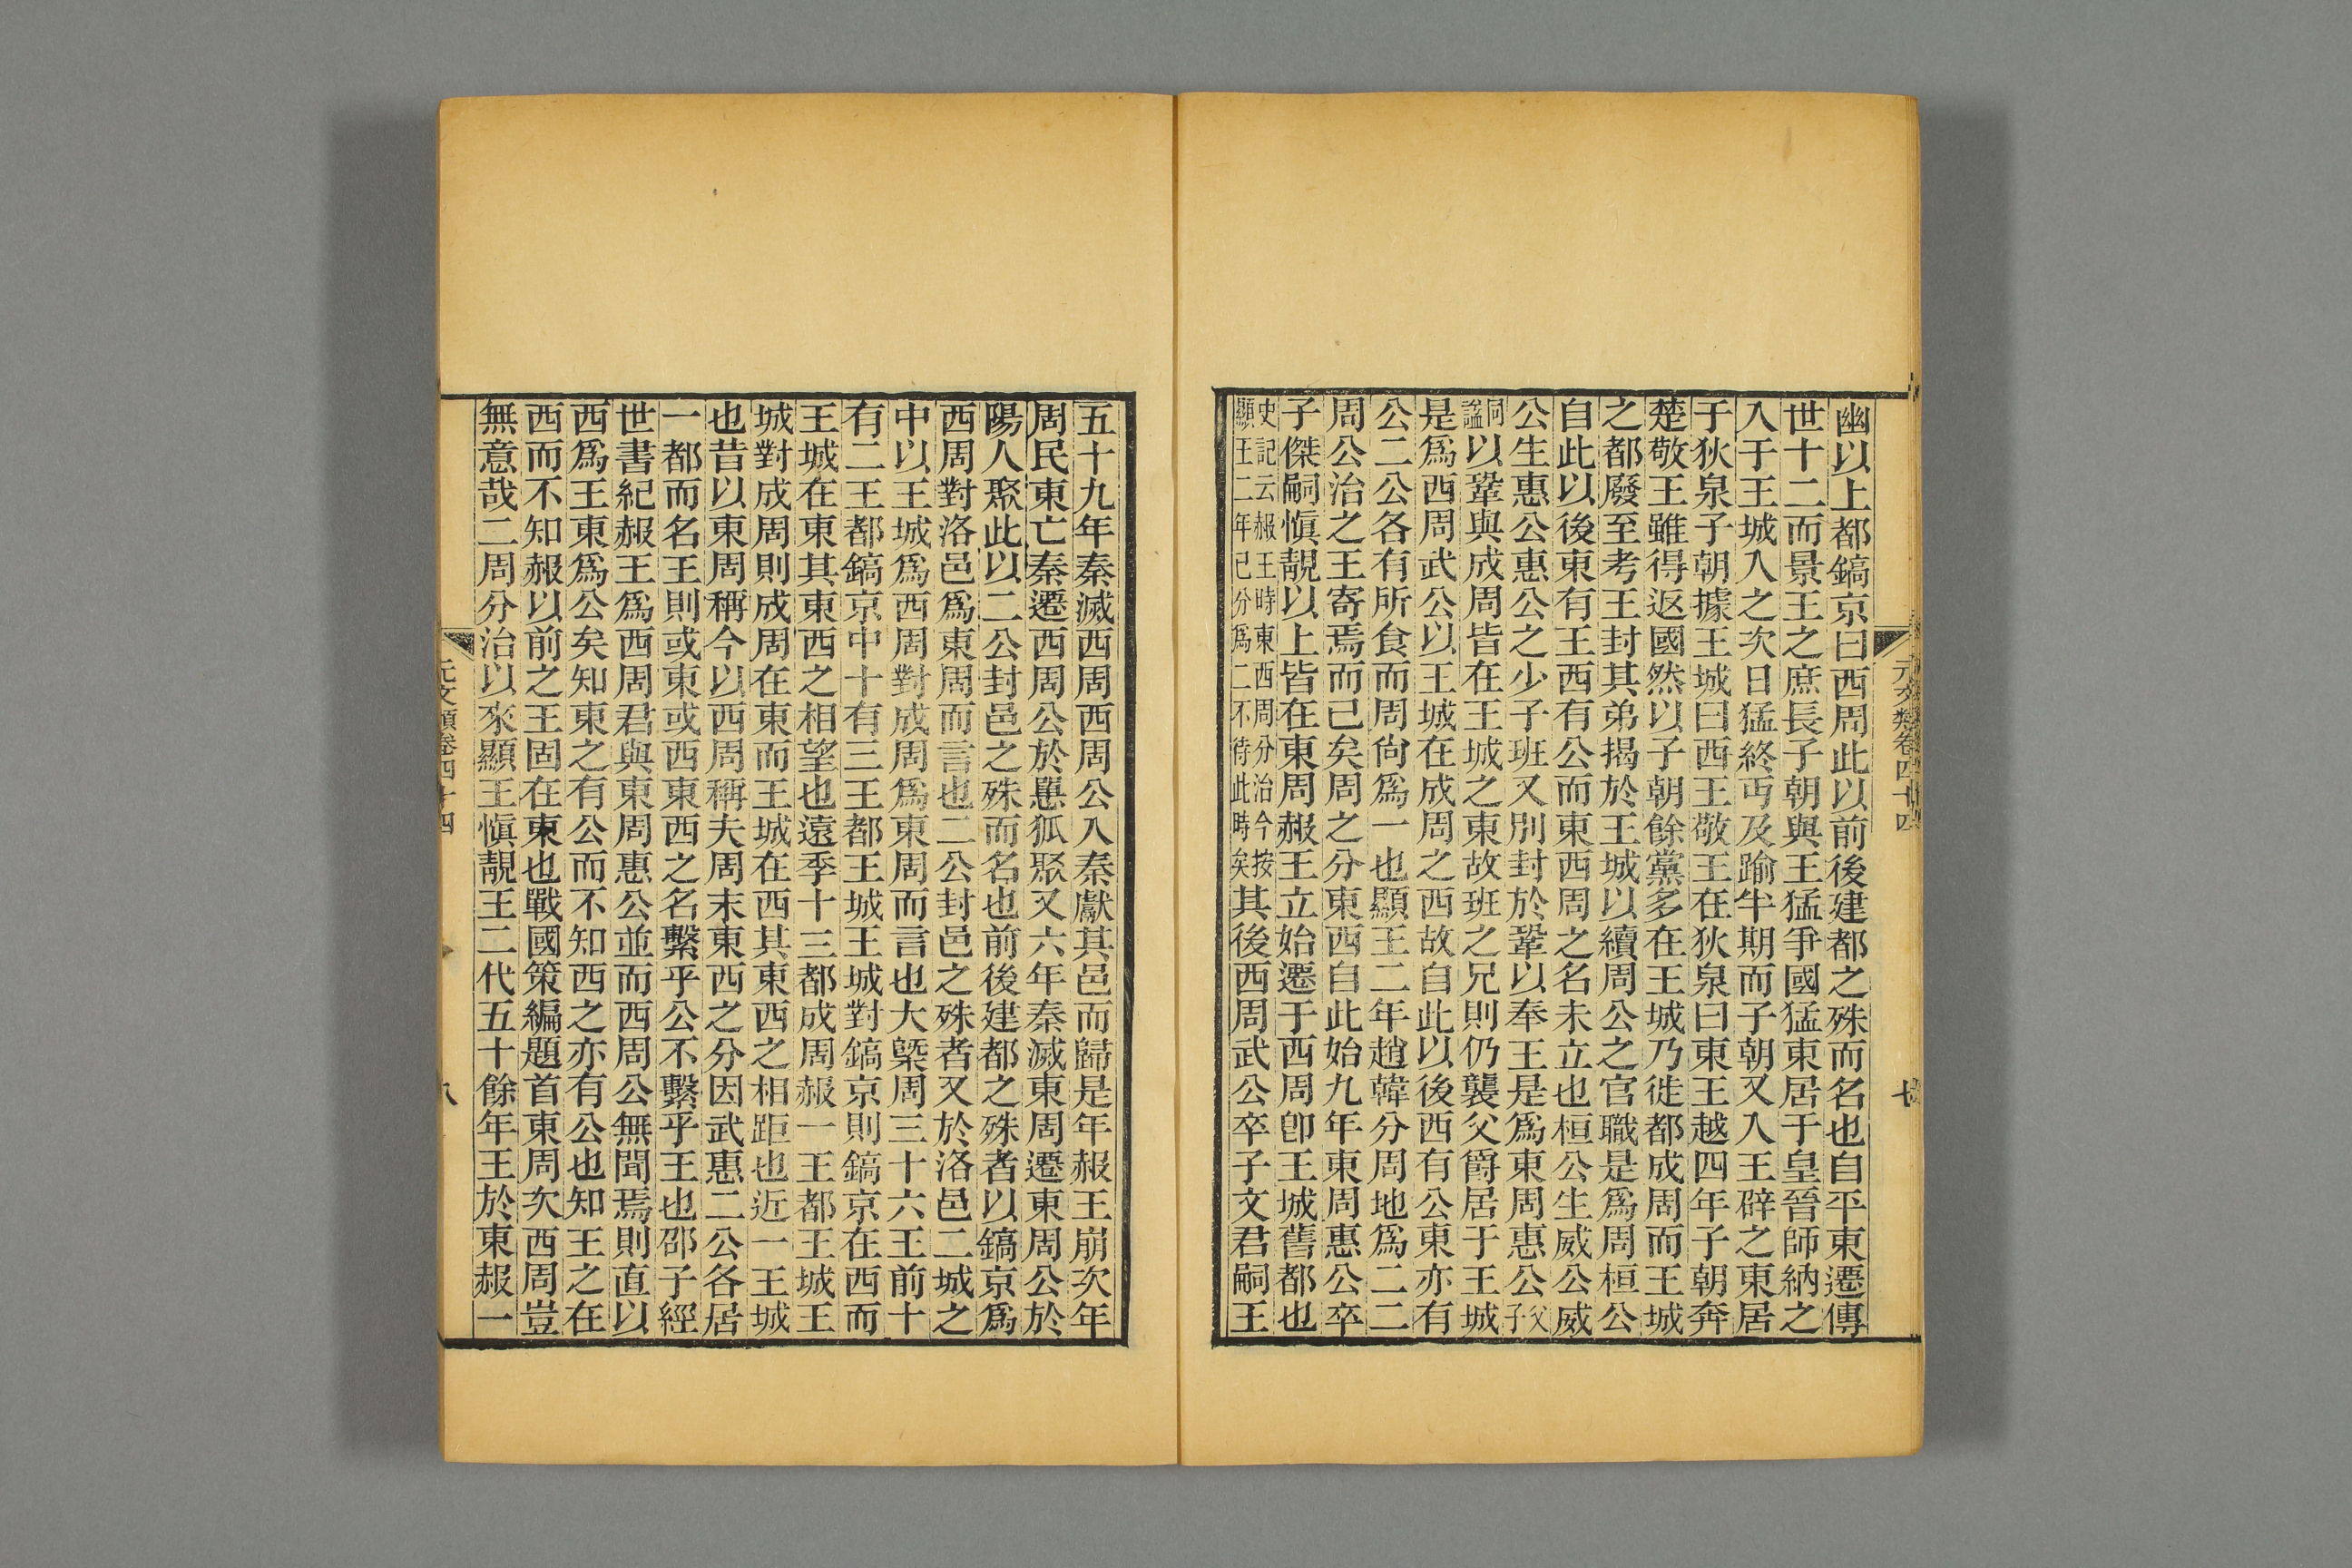 元文類卷四十四
七
幽以上都鎬京曰西周此以前後建都之殊而名也自平東遷傳
世十二而景王之庶長子朝與王猛爭國猛東居于皇晉師納之
入于王城入之次日猛終丐及踰半期而子朝又入王辟之東居
于狄泉子朝據王城曰西王敬王在狄泉曰東王越四年子朝奔
楚敬王雖得返國然以子朝餘黨多在王城乃徙都成周而王城
之都廢至考王封其弟揭於王城以續周公之官職是爲周桓公
自此以後東有王西有公而東西周之名未立也桓公生威公威
公生惠公惠公之少子班又別封於鞏以奉王是爲東周惠公父子
同諡以鞏與成周皆在王城之東故班之兄則仍襲父爵居于王城
是爲西周武公以王城在成周之西故自此以後西有公東亦有
公二公各有所食而周尙爲一也顯王二年趙韓分周地爲二二
周公治之王寄焉而已矣周之分東西自此始九年東周惠公卒
子傑嗣愼靚以上皆在東周赧王立始遷于西周卽王城舊都也
史記云赧王時東西周分治今按顯王二年已分爲二不待此時矣其後西周武公卒子文君嗣王
五十九年秦滅西周西周公入秦獻其邑而歸是年赧王崩次年
周民東亡秦遷西周公於𢠸狐聚又六年秦滅東周遷東周公於
陽人聚此以二公封邑之殊而名也前後建都之殊者以鎬京爲
西周對洛邑爲東周而言也二公封邑之殊者又於洛邑二城之
中以王城爲西周對成周爲東周而言也大槩周三十六王前十
有二王都鎬京中十有三王都王城王城對鎬京則鎬京在西而
王城在東其東西之相望也遠季十三都成周赧一王都王城王
城對成周則成周在東而王城在西其東西之相距也近一王城
也昔以東周稱今以西周稱夫周末東西之分因武惠二公各居
一都而名王則或東或西東西之名繫乎公不繫乎王也邵子經
世書紀赧王爲西周君與東周惠公並而西周公無聞焉則直以
西爲王東爲公矣知東之有公而不知西之亦有公也知王之在
西而不知赧以前之王固在東也戰國策編題首東周次西周豈
無意哉二周分治以來顯王愼靚王二代五十餘年王於東赧一
元文類卷四十四
八